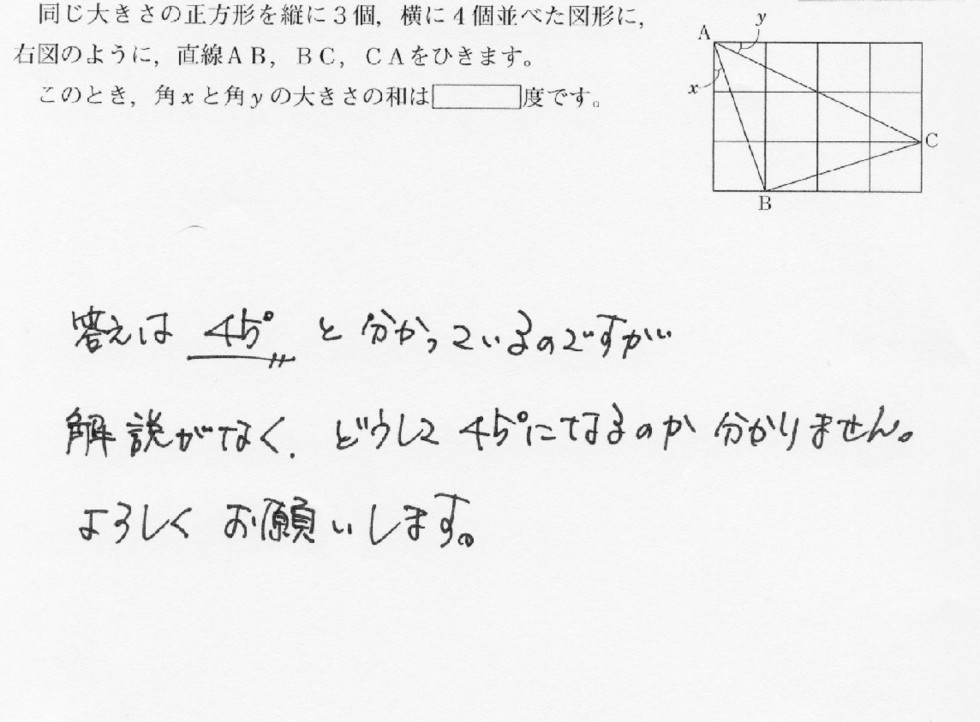 同じ大きさの正方形を縦に３個，横に４個並べた図形に，
右図のように，直線ＡＢ，ＢＣ，ＣＡをひきます。
このとき，角xと角yの大きさの和は 度です。
A
y
x
C
B
答えは 45° と分かっているのですが
解説がなく、どうして 45°になるのか 分かりません。
よろしく お願いします。